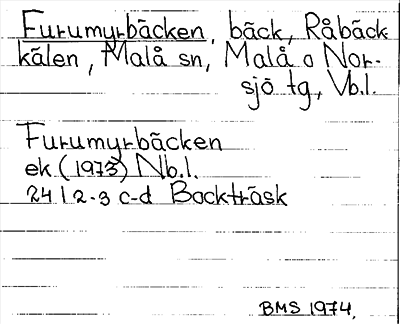 Furumyrbäcken, bäck, Råbäck
kälen, Malå sn, Malå o Nor-
sjö tg, Vb.l.
Furumyrbäcken
ek (1973) Nb.l.
24 I 2-3 c-d Backträsk
BMS 1974.